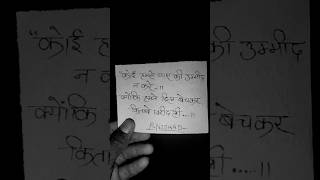 "कोई हमसे प्यार की उम्मीद
न करे..!!
क्योंकि हमने दिल बेचकर
किताबें खरीद ली....!!